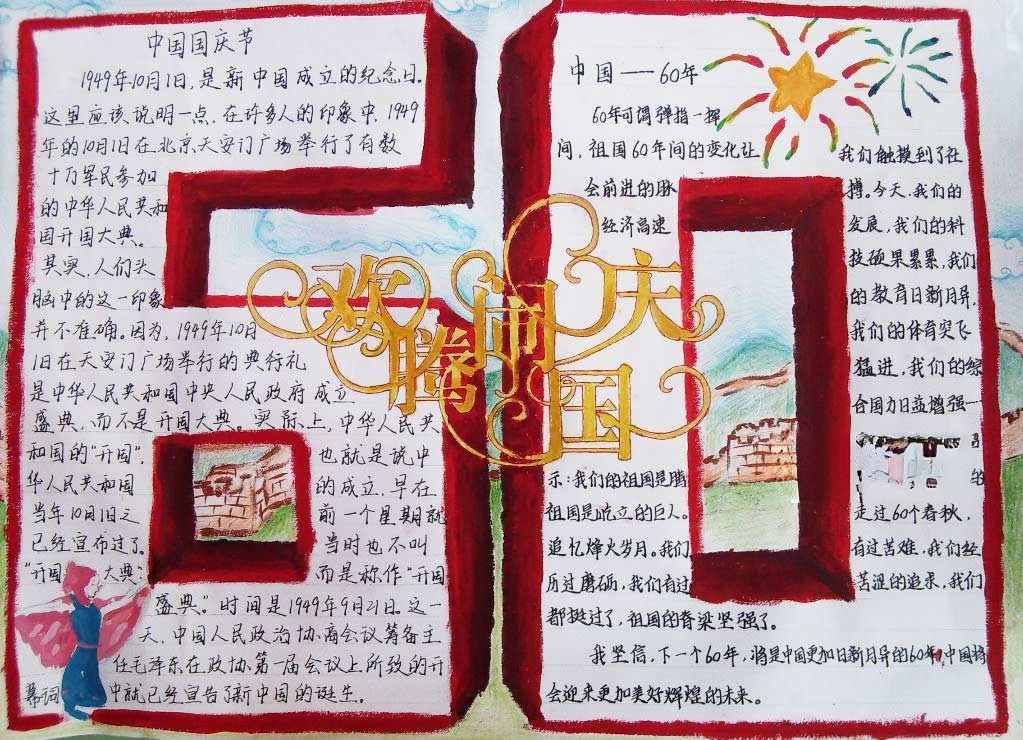 中国国庆节
1949年10月1日,是新中国成立的纪念日。
这里应该说明一点,在许多人的印象中,1949
年的10月1日在北京天安门广场举行了有数
十万军民参加
的中华人民共和
国开国大典。
其实,人们头
脑中的这一印象
并不准确。因为,1949年10月
1日在天安门广场举行的典行礼
是中华人民共和国中央人民政府成立
盛典,而不是开国大典。实际上,中华人民共
和国的“开国”, 也就是说中
华人民共和国 的成立,早在
当年10月1日之 前一个星期就
已经宣布过了。 当时也不叫
“开国 大典”, 而是称作“开国
盛典”。时间是1949年9月21日。这一
天,中国人民政治协商会议筹备主
任毛泽东在政协第一届会议上所致的开
幕词 中就已经宣告了新中国的诞生。
欢腾闹国庆
中国——60年
60年可谓弹指一挥
间,祖国60年间的变化让 我们触摸到了社
会前进的脉 搏。今天,我们的
经济高速 发展,我们的科
技硕果累累,我们
的教育日新月异,
我们的体育突飞
猛进,我们的综
合国力日益增强一
示:我们的祖国是腾 的
祖国是屹立的巨人。 走过60个春秋,
追忆烽火岁月。我们 有过苦难,我们经
历过磨砺,我们有过 苦涩的追求,我们
都挺过了,祖国的脊梁坚强了。
我坚信,下一个60年,将是中国更加日新月异的60年,中国将
会迎来更加美好辉煌的未来。